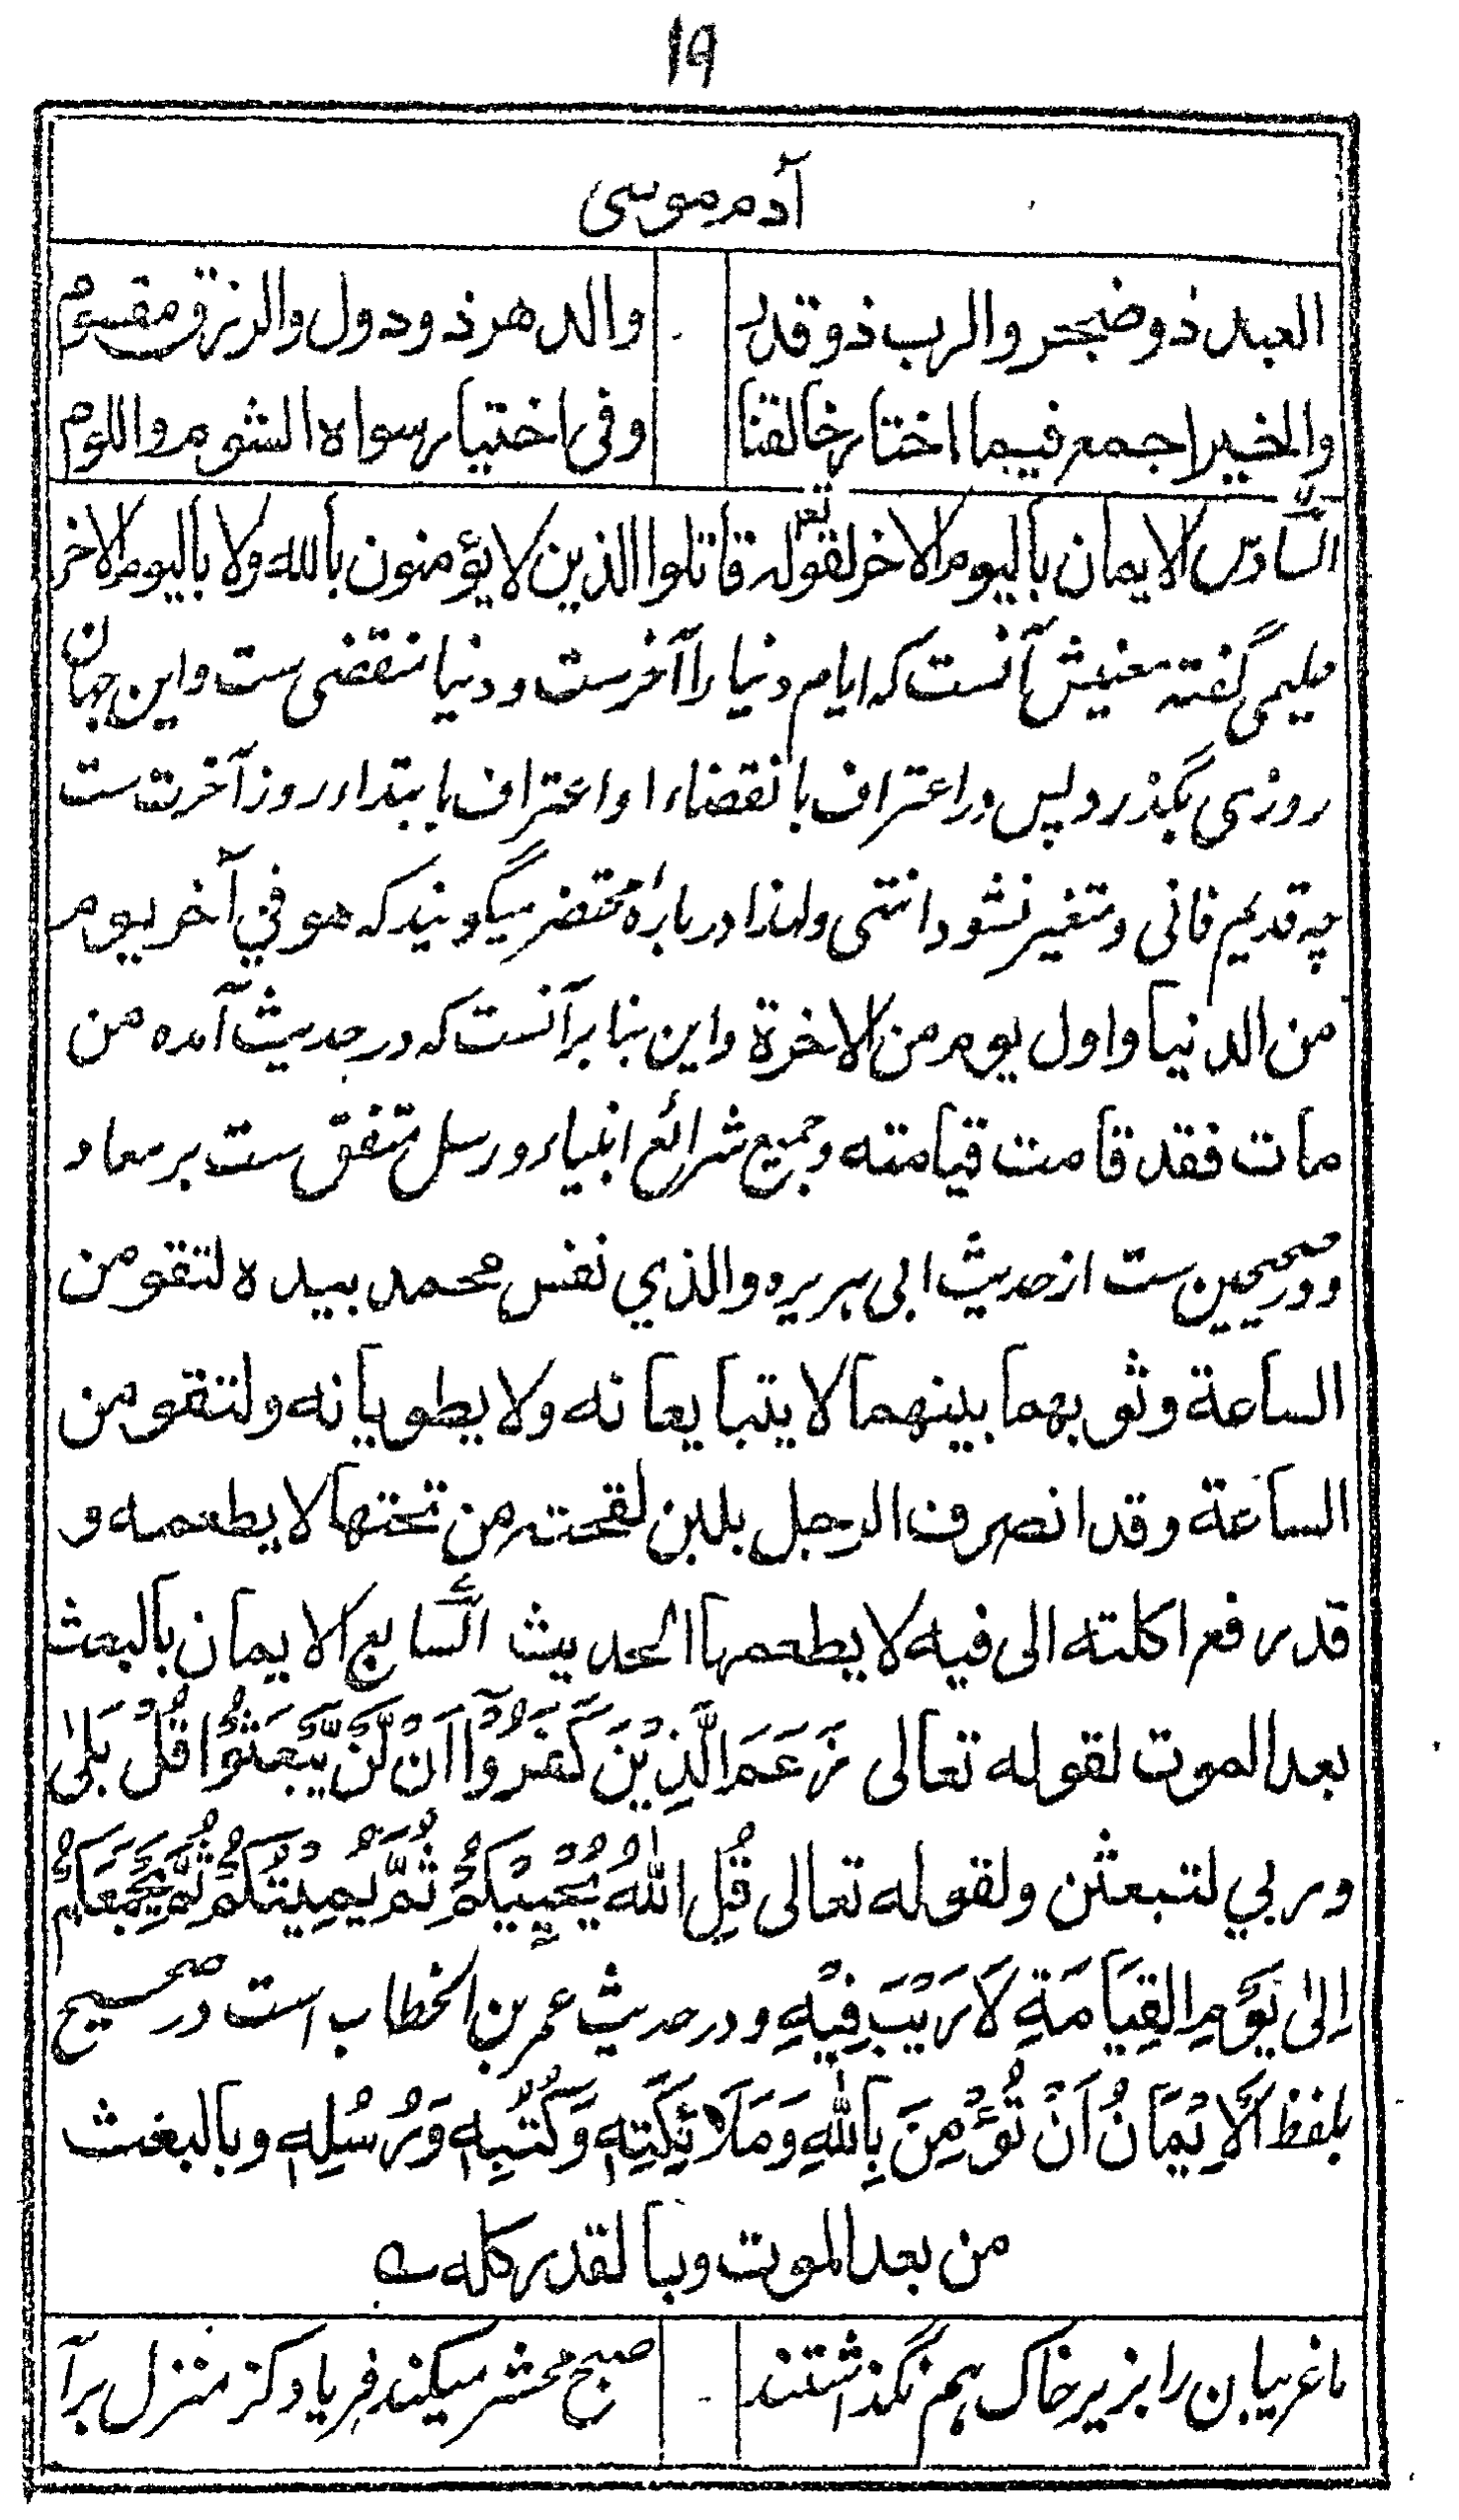 ۱۹
آدم موسی
العبد ذو ضجر والرب ذو قدر والدهر ذو دول والرزق مقسوم
والخير اجمع فيما اختار خالقنا وفي اختيار سواه الشوم واللوم
السادس الايمان باليوم الاخر لقوله تعر قاتلوا الذين لا يؤمنون بالله ولا باليوم الاخر
حلیمی گفته معنیش آنست که ایام دنیا را آخرست و دنیا منقضی ست و این جهان
روزی بگذرد پس در اعتراف بانقضاء او اعتراف بابتداء روز آخرت ست
چه قدیم فانی و متغیر نشود انتهی ولهذا درباره محتضر میگویند که هو في آخر يوم
من الدنيا واول يوم من الاخرة و این بنا بر آنست که در حدیث آمده من
مات فقد قامت قيامته و جمیع شرائع انبیاء و رسل متفق ست بر معاد
و در صحیحین ست از حدیث ابی ہریره والذي نفس محمد بيده لتقومن
الساعة وثوبهما بينهما لا يتبايعانه ولا يطويانه ولتقومن
الساعة وقد انصرف الرجل بلبن لقحته من تحتها لا يطعمه و
قد رفع اكلته الى فيه لا يطعمها الحديث السابع الايمان بالبعث
بعد الموت لقوله تعالى زَعَمَ الَّذِيْنَ كَفَرُوْۤا اَنْ لَّنْ يُّبْعَثُوْا قُلْ بَلٰى
وربي لتبعثن ولقوله تعالى قُلِ اللّٰهُ يُحْيِيْكُمْ ثُمَّ يُمِيْتُكُمْ ثُمَّ يَجْمَعُكُمْ
اِلٰى يَوْمِ الْقِيَامَةِ لَا رَيْبَ فِيْهِ و در حدیث عمر بن الخطاب است در صحیح
بلفظ اَلْاِيْمَانُ اَنْ تُؤْمِنَ بِاللّٰهِ وَمَلَائِكَتِهٖ وَكُتُبِهٖ وَرُسُلِهٖ وبالبعث
من بعد الموت وبالقدر كله ؎
ما غریبان را بزیر خاک ہم نگذاشتند صبح محشر میکند فریاد کز منزل برآ